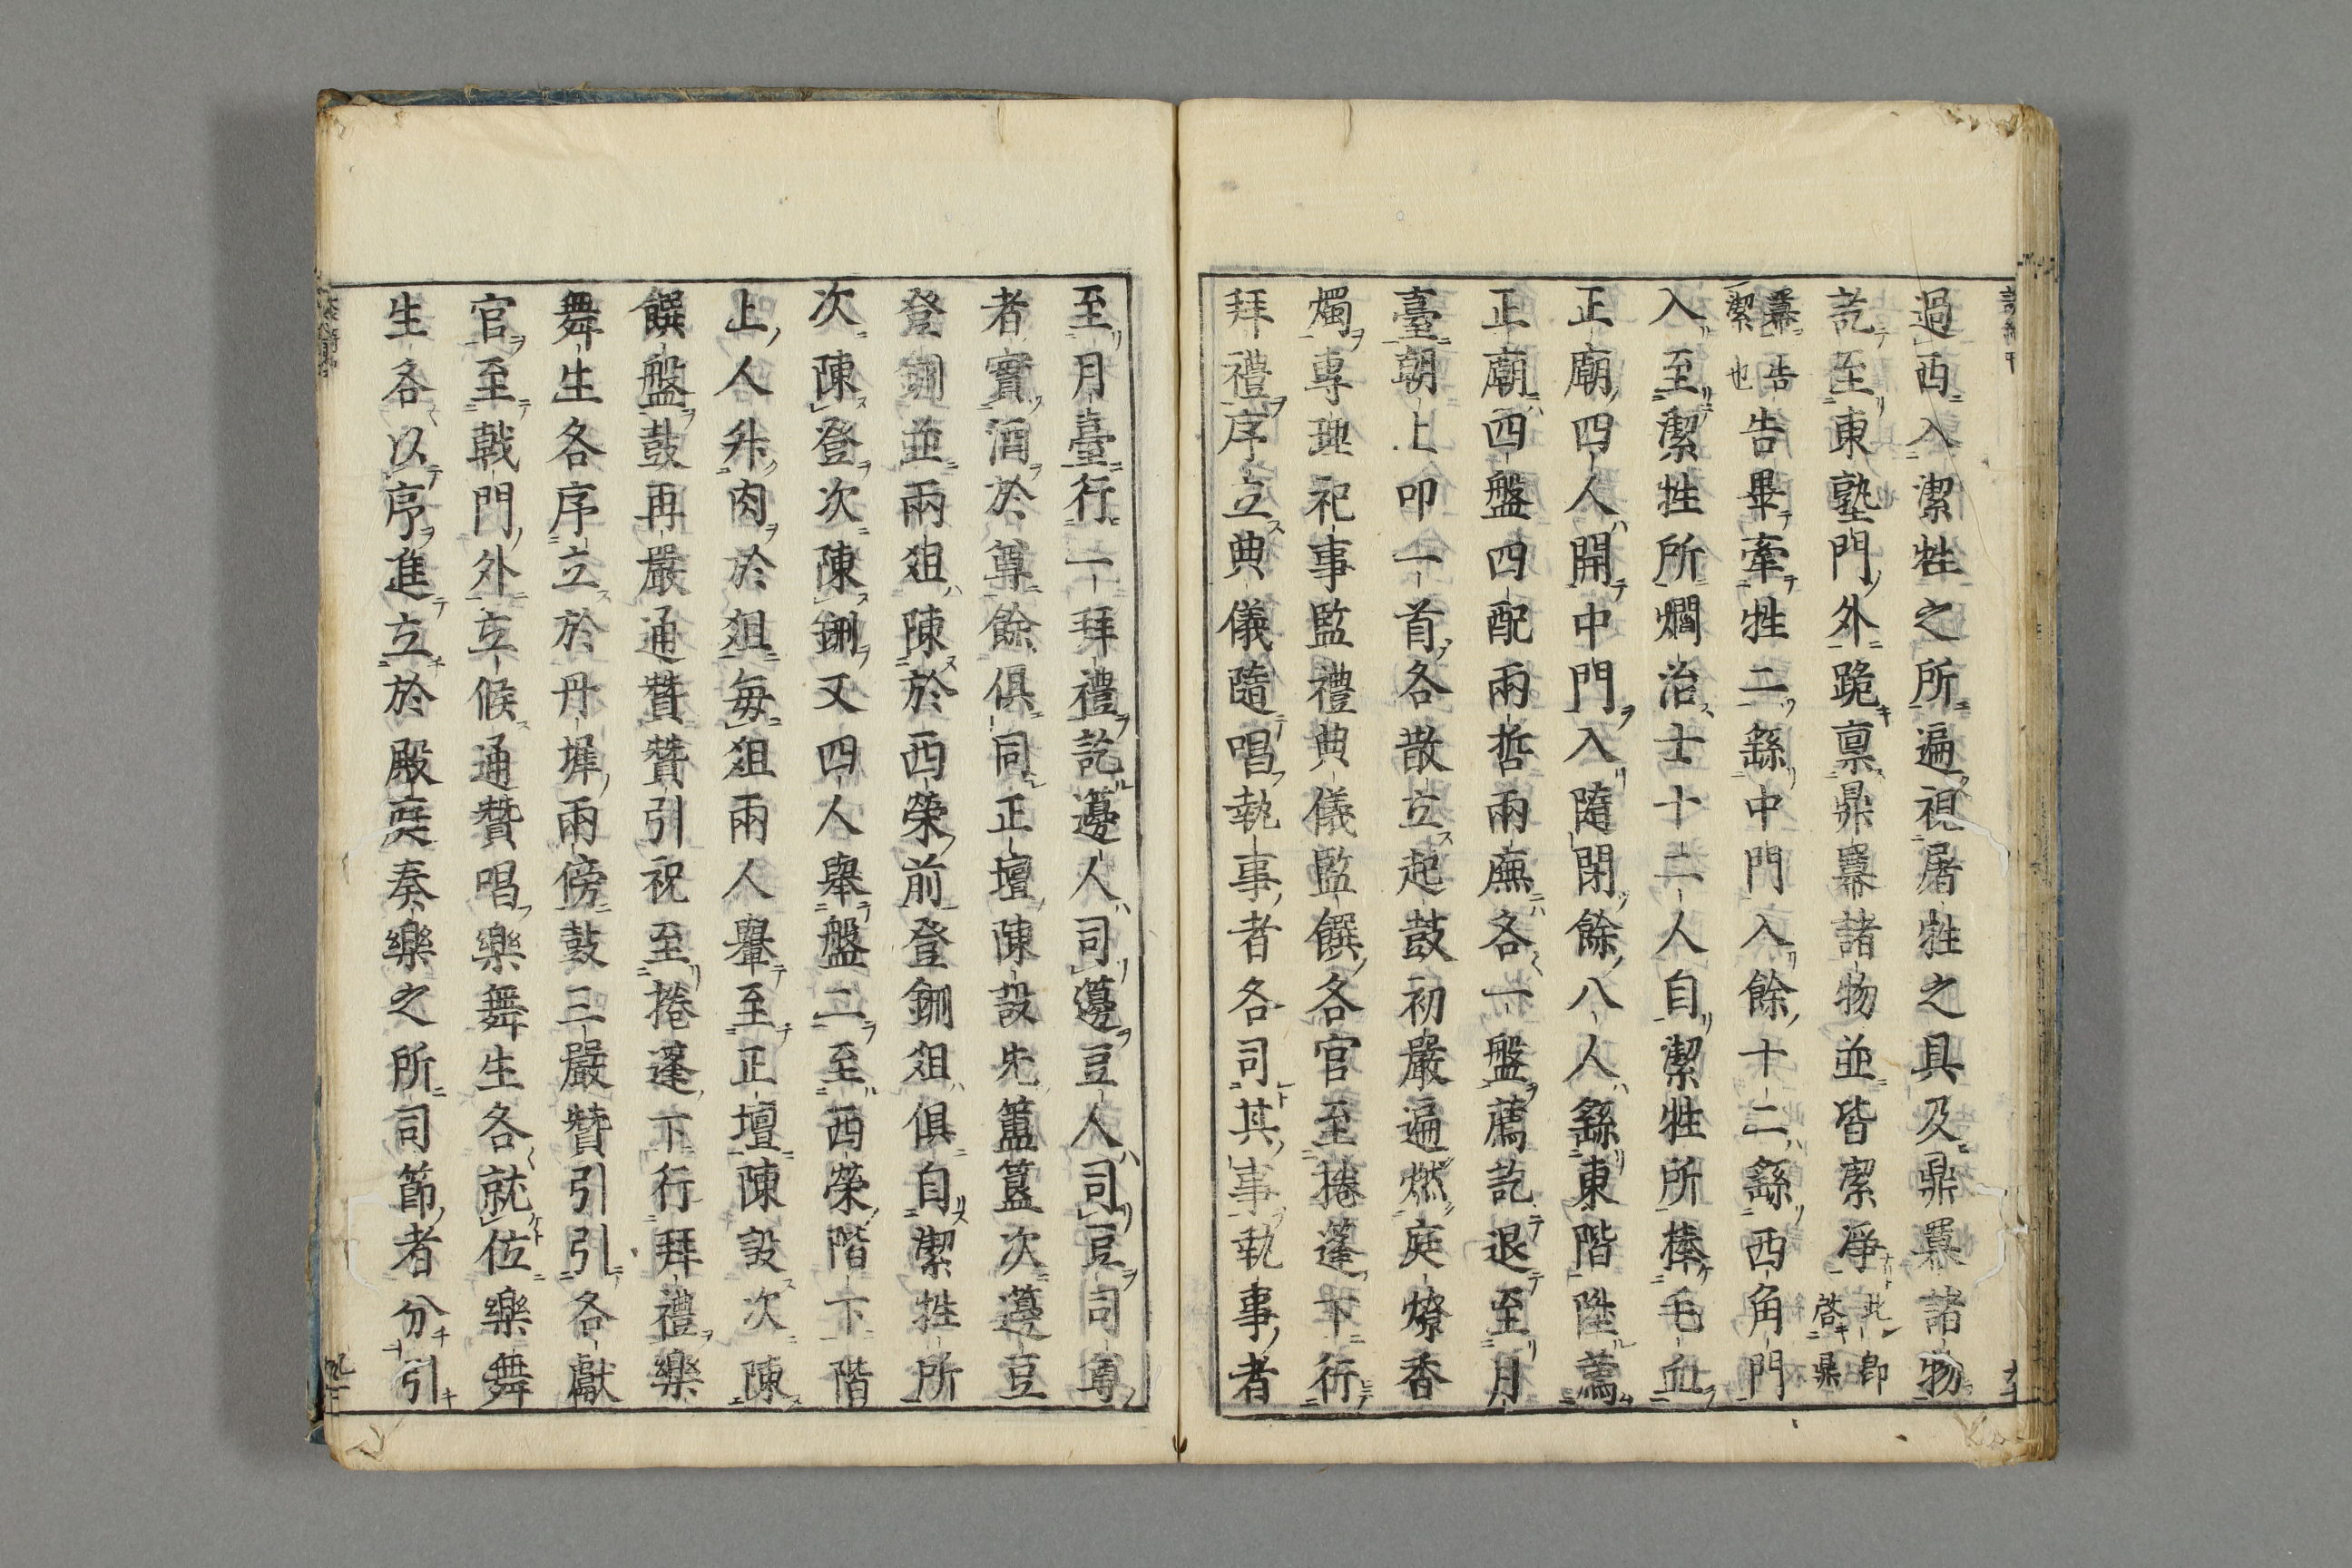 過西入潔牲之所遍視屠牲之具及鼎冪諸物
訖至東塾門外跪禀鼎冪諸物並皆潔淨此即啓鼎
冪告潔也告畢牽牲二繇中門入餘十二繇西角門
入至潔牲所燗治士十二人自潔牲所捧毛血
正廟四人開中門入隨閉餘八人繇東階陞薦
正廟四盤四配兩哲兩廡各一盤薦訖退至月
臺朝上叩一首各散立起鼓初嚴遍燃庭燎香
燭專典祀事監禮典儀監饌各官至捲蓬下行
拜禮序立典儀隨唱執事者各司其事執事者
至月臺行一拜禮訖籩人司籩豆人司豆司尊
者實酒於尊餘俱同正壇陳設先簠簋次籩豆
登鉶並兩俎陳於西榮前登鉶俎俱自潔牲所
次陳登次陳鉶又四人舉盤二至西榮階下階
上人升肉於俎每俎兩人轝至正壇陳設次陳
饌盤鼓再嚴通贊贊引祝至捲蓬下行拜禮樂
舞生各序立於丹墀兩傍鼓三嚴贊引引各獻
官至戟門外立候通贊唱樂舞生各就位樂舞
生各以序進立於殿庭奏樂之所司節者分引